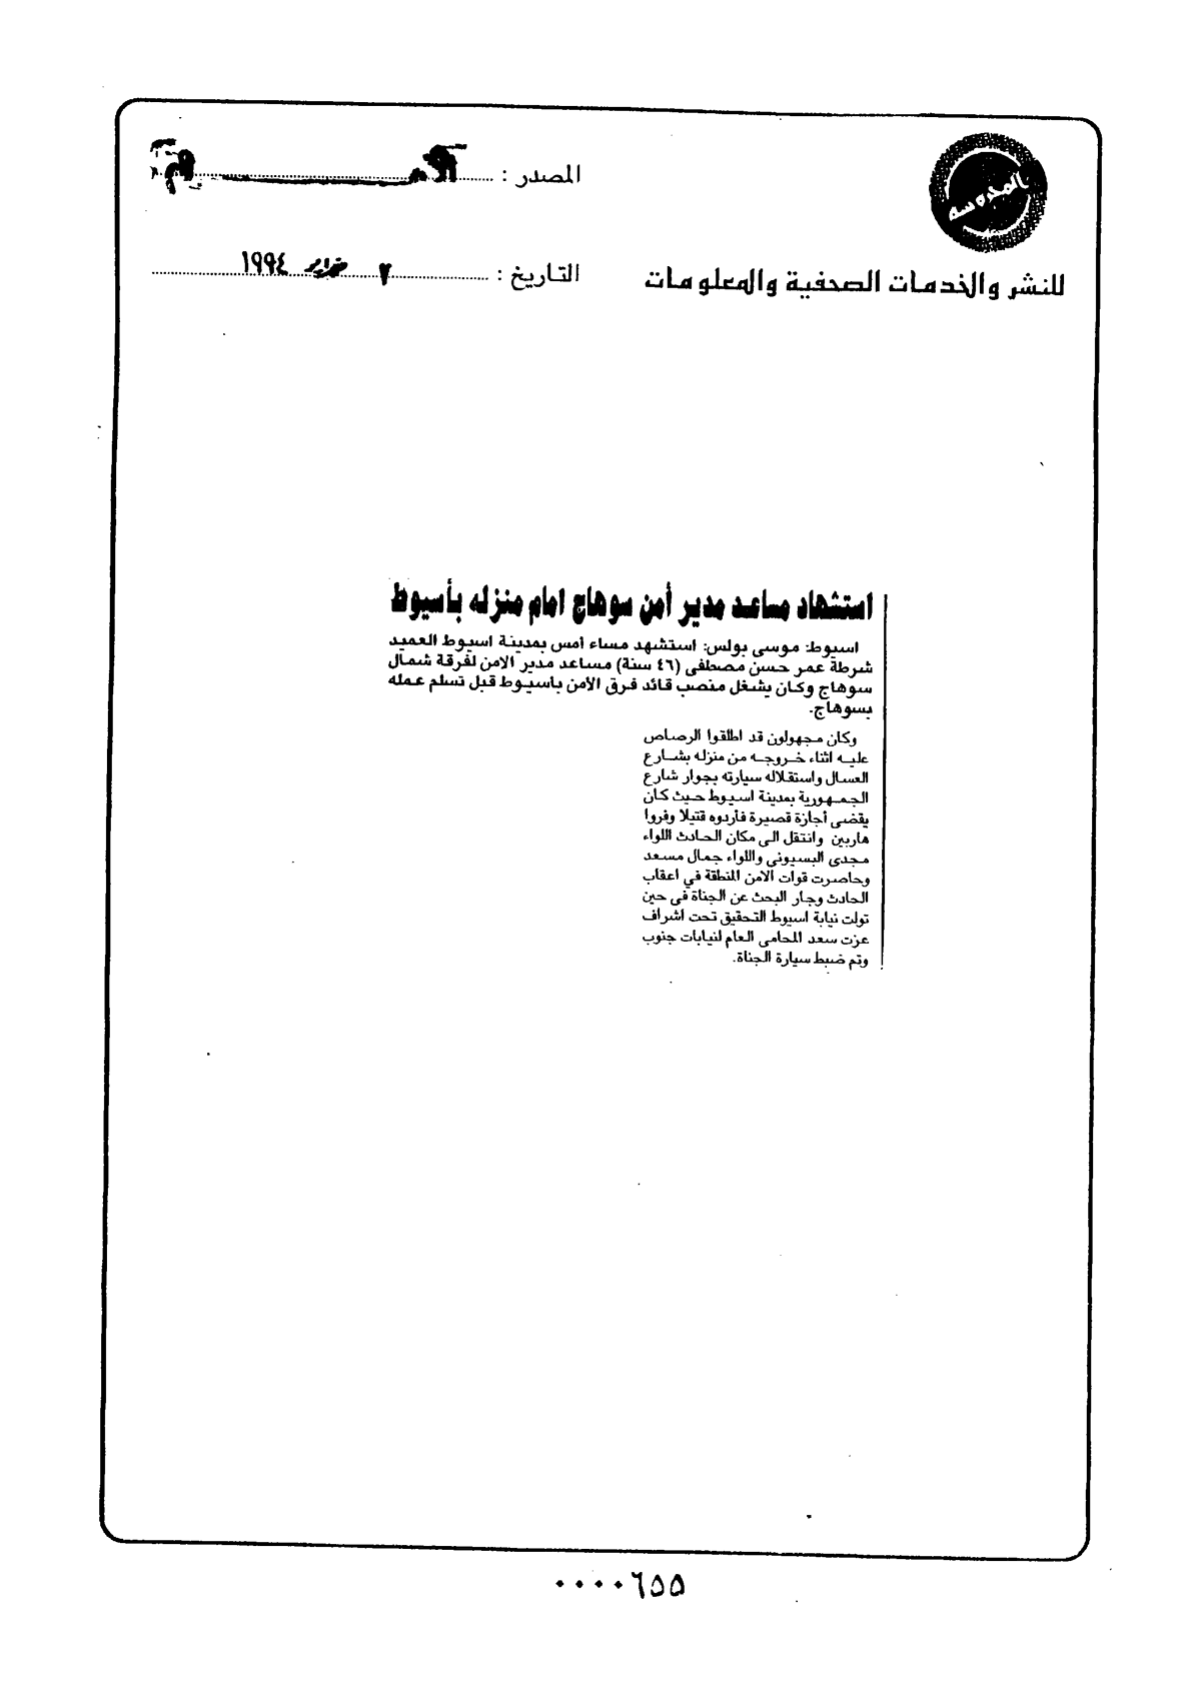 المحروسة
للنشر والخدمات الصحفية والمعلومات
المصدر :
التاريخ : ٢ فبراير ١٩٩٤
استشهاد مساعد مدير أمن سوهاج امام منزله بأسيوط
اسيوط: موسى بولس: استشهد مساء أمس بمدينة اسيوط العميد
شرطة عمر حسن مصطفى (٤٦ سنة) مساعد مدير الامن لفرقة شمال
سوهاج وكان يشغل منصب قائد فرق الأمن باسيوط قبل تسلم عمله
بسوهاج.
وكان مجهولون قد اطلقوا الرصاص
عليه اثناء خروجه من منزله بشارع
العسال واستقلاله سيارته بجوار شارع
الجمهورية بمدينة اسيوط حيث كان
يقضى أجازة قصيرة فأردوه قتيلا وفروا
هاربين وانتقل الى مكان الحادث اللواء
مجدى البسيونى واللواء جمال مسعد
وحاصرت قوات الامن المنطقة في اعقاب
الحادث وجار البحث عن الجناة فى حين
تولت نيابة اسيوط التحقيق تحت اشراف
عزت سعد المحامى العام لنيابات جنوب
وتم ضبط سيارة الجناة.
٠٠٠٠٦٥٥